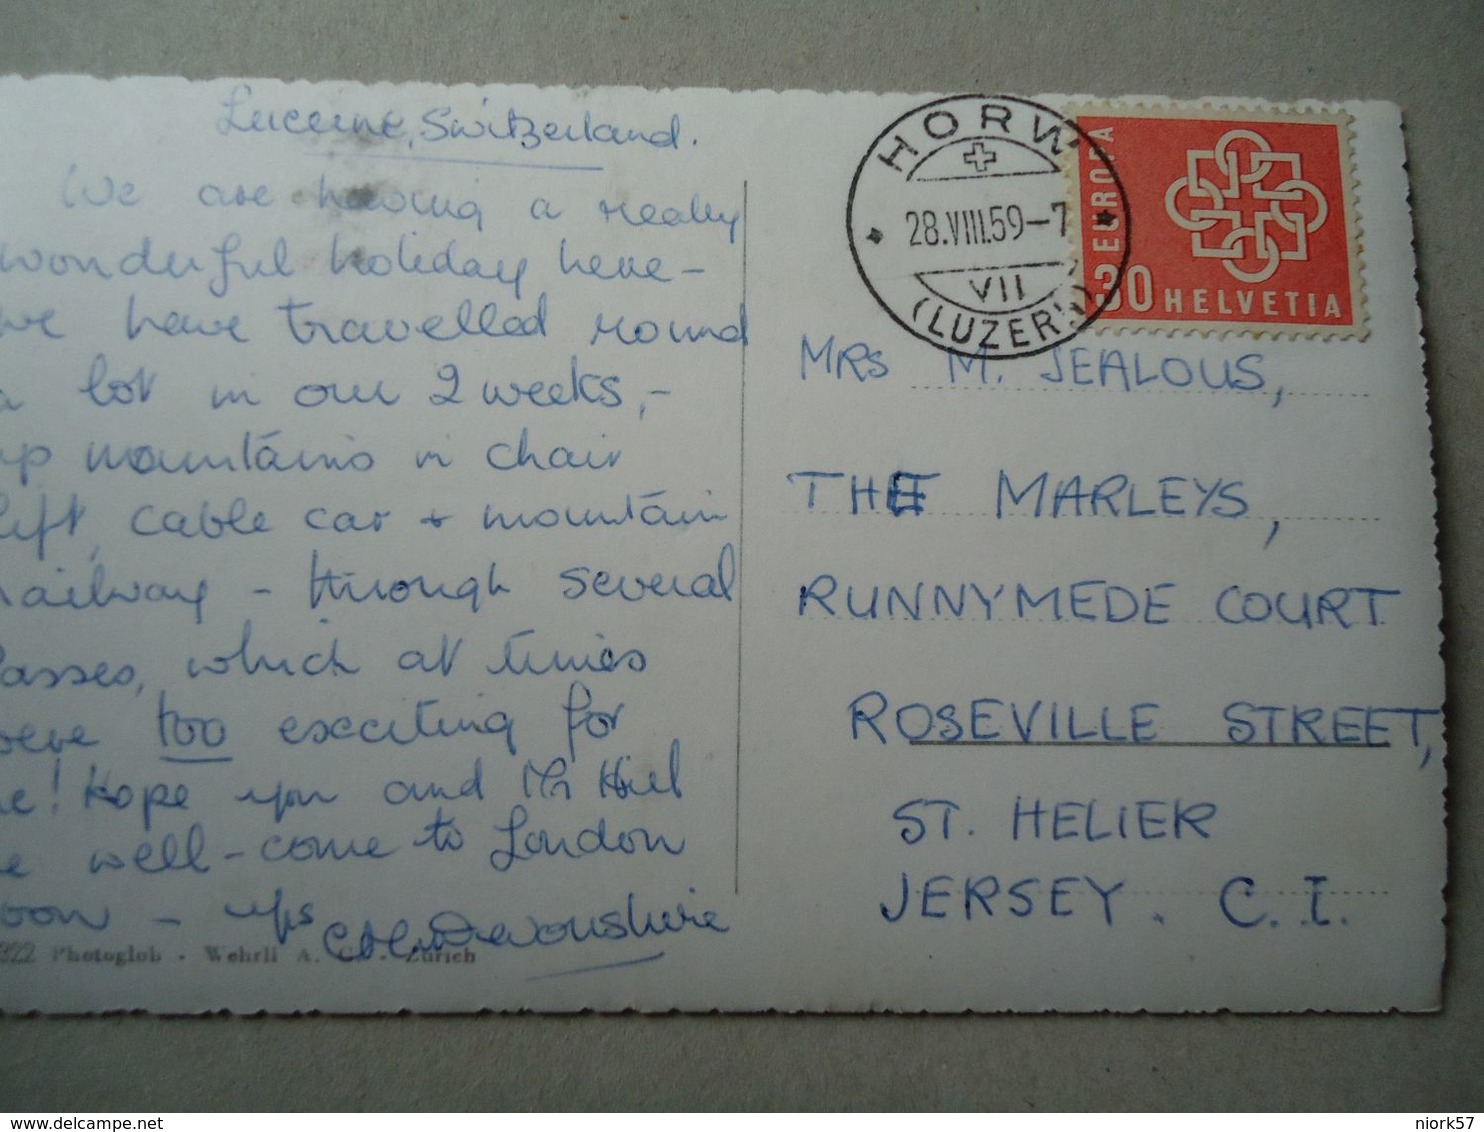 Lucerne, Switzerland.
We are having a really
wonderful holiday here -
we have travelled round
a lot in our 2 weeks, -
up mountains in chair
lift, cable car + mountain
railway - through several
Passes, which at times
were too exciting for
me! Hope you and Mr Hill
are well - come to London
soon - yrs
Devonshire
322 Photoglob - Wehrli A. G. - Zürich
HORW
28.VIII.59-7
VII
(LUZERN)
EUROPA
30 HELVETIA
MRS M. JEALOUS,
THE MARLEYS,
RUNNYMEDE COURT
ROSEVILLE STREET,
ST. HELIER
JERSEY. C. I.
delcampe.net
niork57